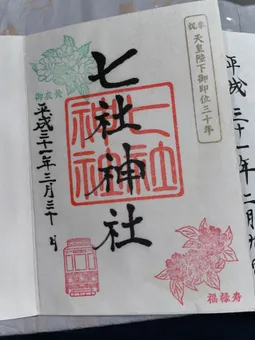 奉祝
天皇陛下御即位三十年
七社神社
七社
神社
御衣黄
平成三十一年三月三十日
福禄寿
平成三十一年二月